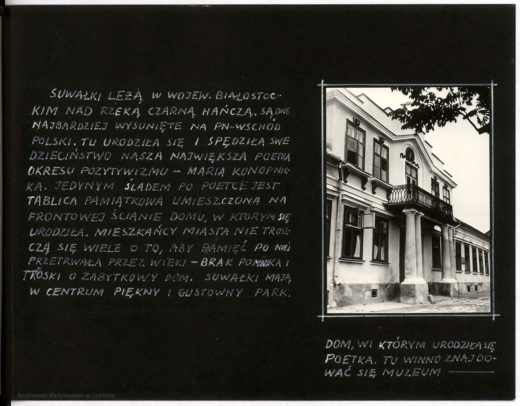 SUWAŁKI LEŻĄ W WOJEW. BIAŁOSTOC-
KIM NAD RZEKĄ CZARNĄ HAŃCZĄ, SĄ ONE
NAJBARDZIEJ WYSUNIĘTE NA PN-WSCHÓD
POLSKI. TU URODZIŁA SIĘ I SPĘDZIŁA SWE
DZIECIŃSTWO NASZA NAJWIĘKSZA POETKA
OKRESU POZYTYWIZMU – MARIA KONOPNIC-
KA. JEDYNYM ŚLADEM PO POETCE JEST
TABLICA PAMIĄTKOWA UMIESZCZONA NA
FRONTOWEJ ŚCIANIE DOMU, W KTÓRYM SIĘ
URODZIŁA. MIESZKAŃCY MIASTA NIE TROSZ-
CZĄ SIĘ WIELE O TO, ABY PAMIĘĆ PO NIEJ
PRZETRWAŁA PRZEZ WIEKI – BRAK POMNIKA I
TROSKI O ZABYTKOWY DOM. SUWAŁKI MAJĄ
W CENTRUM PIĘKNY I GUSTOWNY PARK.
DOM, W KTÓRYM URODZIŁA SIĘ
POETKA. TU WINNO ZNAJDO-
WAĆ SIĘ MUZEUM
Archiwum Państwowe w Lublinie